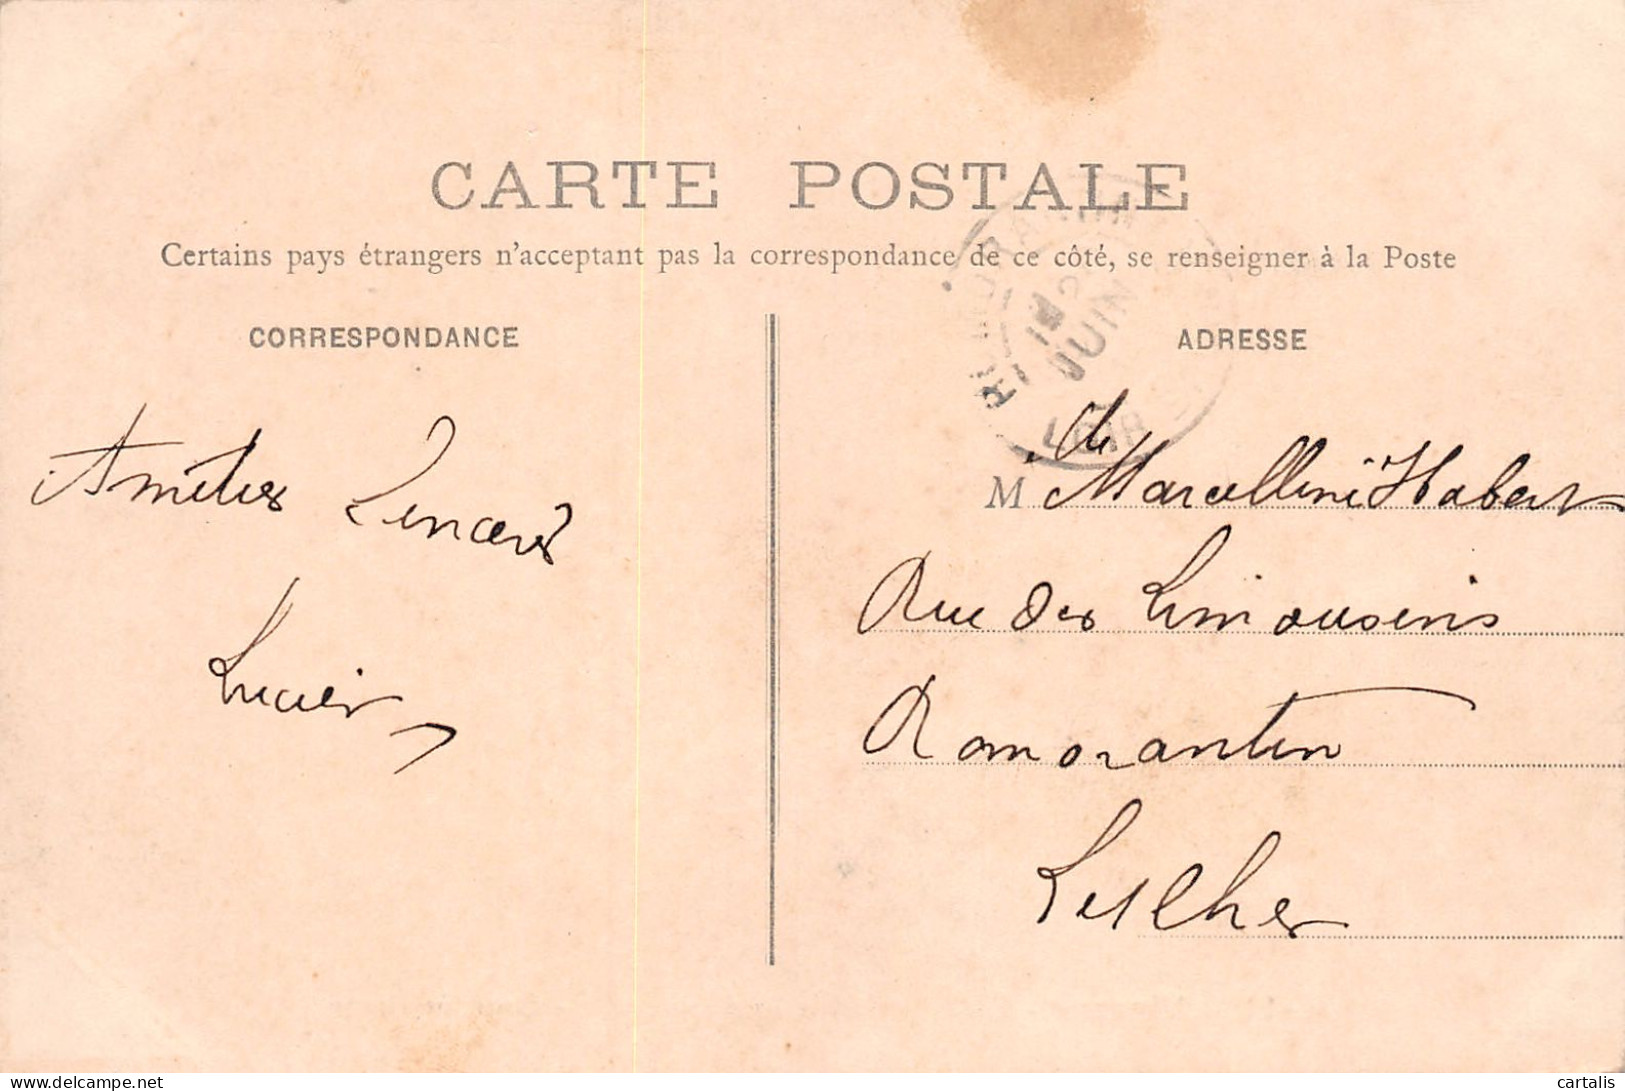 CARTE POSTALE
Certains pays étrangers n'acceptant pas la correspondance de ce côté, se renseigner à la Poste
CORRESPONDANCE
ADRESSE
JUIN
LOIR
Amitiés
Lucien
M lle Marcelline Habert
Rue des Limousins
Romorantin
L et Cher
delcampe.net
cartalis